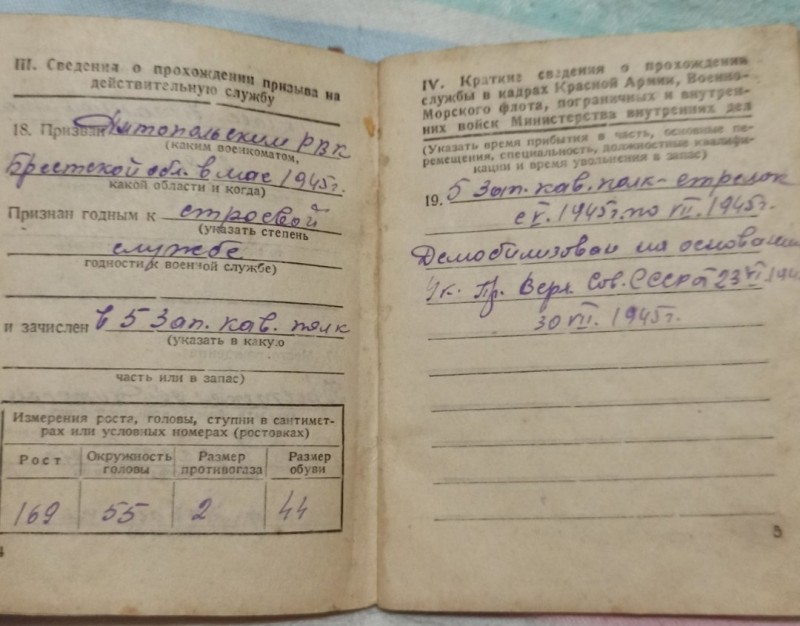 III. Сведения о прохождении призыва на
действительную службу
18. Призван Антопольским РВК
(каким военкоматом,
Брестской обл. в мае 1945г.
какой области и когда)
Признан годным к строевой
(указать степень
службе
годности к военной службе)
и зачислен в 5 Зап. кав. полк
(указать в какую
часть или в запас)
Измерения роста, головы, ступни в сантимет-
рах или условных номерах (ростовках)
Рост Окружность головы Размер противогаза Размер обуви
169 55 2 44
4
IV. Краткие сведения о прохождении
службы в кадрах Красной Армии, Военно-
Морского флота, пограничных и внутрен-
них войск Министерства внутренних дел
(Указать время прибытия в часть, основные пе-
ремещения, специальность, должностные квалифи-
кации и время увольнения в запас)
19. 5 Зап. кав. полк - стрелок
с V. 1945г. по VII. 1945г.
Демобилизован на основании
Ук. Пр. Верх. Сов. СССР от 23 VI 194
30 VII. 1945г.